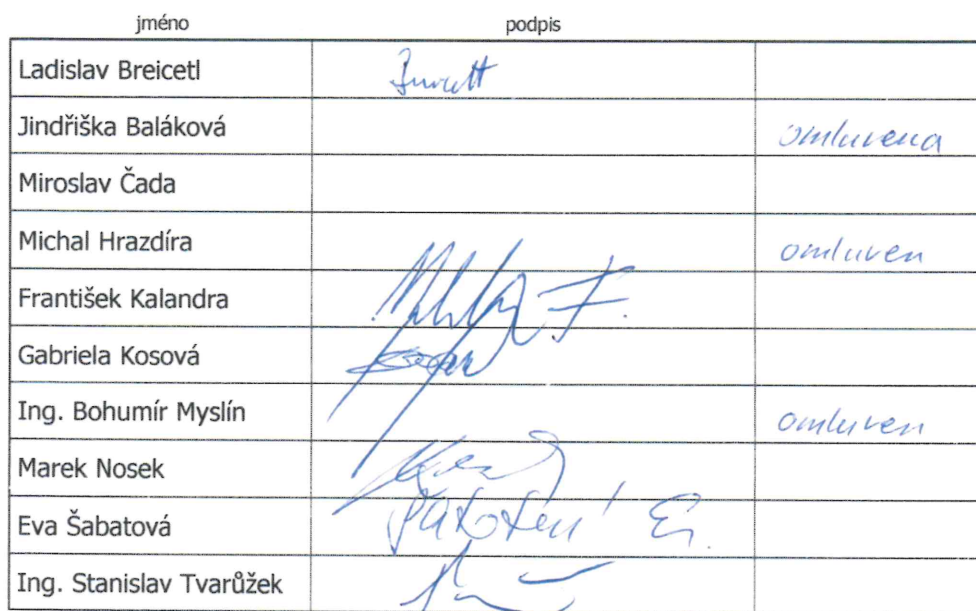 jméno podpis
Ladislav Breicetl
Jindřiška Baláková omluvena
Miroslav Čada
Michal Hrazdíra omluven
František Kalandra F.
Gabriela Kosová
Ing. Bohumír Myslín omluven
Marek Nosek
Eva Šabatová E.
Ing. Stanislav Tvarůžek